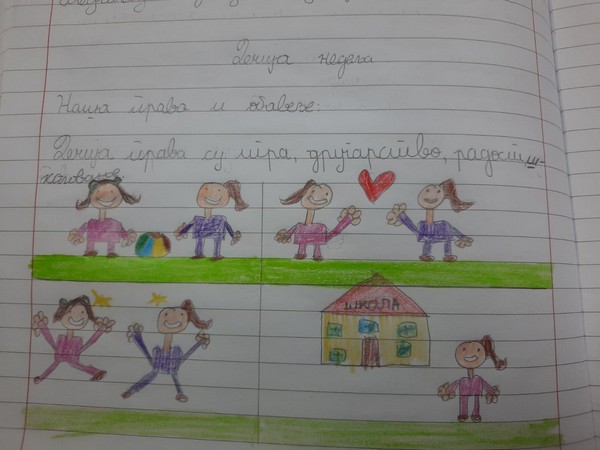 Дечија недеља
Наша права и обавезе:
Дечија права су игра, другарство, радост, ш
коловање
ШКОЛА